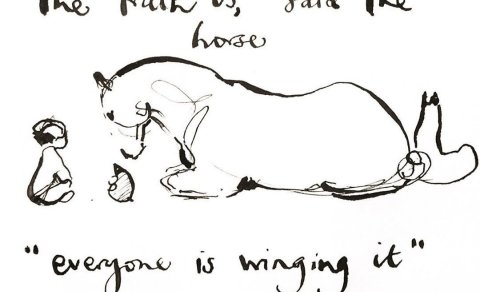 The truth is," said the
horse
"everyone is winging it"